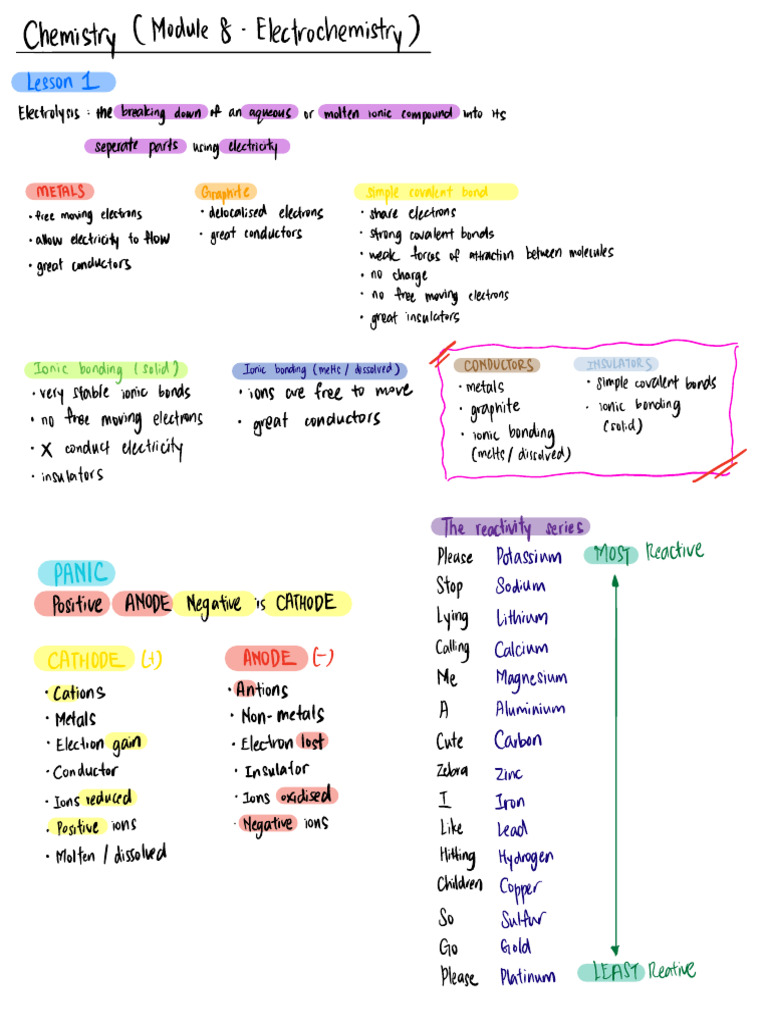 Chemistry (Module 8 - Electrochemistry)
Lesson 1
Electrolysis : the breaking down of an aqueous or molten ionic compound into its
seperate parts using electricity
METALS
• free moving electrons
• allow electricity to flow
• great conductors
Graphite
• delocalised electrons
• great conductors
simple covalent bond
• share electrons
• strong covalent bonds
• weak forces of attraction between molecules
• no charge
• no free moving electrons
• great insulators
Ionic bonding (solid)
• very stable ionic bonds
• no free moving electrons
• X conduct electricity
• insulators
Ionic bonding (melts / dissolved)
• ions are free to move
• great conductors
CONDUCTORS
• metals
• graphite
• ionic bonding
(melts / dissolved)
INSULATORS
• simple covalent bonds
• ionic bonding
(solid)
PANIC
Positive ANODE Negative is CATHODE
CATHODE (+)
• Cations
• Metals
• Election gain
• Conductor
• Ions reduced
• Positive ions
• Molten / dissolved
ANODE (-)
• Antions
• Non-metals
• Electron lost
• Insulator
• Ions oxidised
• Negative ions
The reactivity series
Please Potassium MOST Reactive
Stop Sodium
Lying Lithium
Calling Calcium
Me Magnesium
A Aluminium
Cute Carbon
Zebra Zinc
I Iron
Like Lead
Hitting Hydrogen
Children Copper
So Sulfur
Go Gold
Please Platinum LEAST Reative